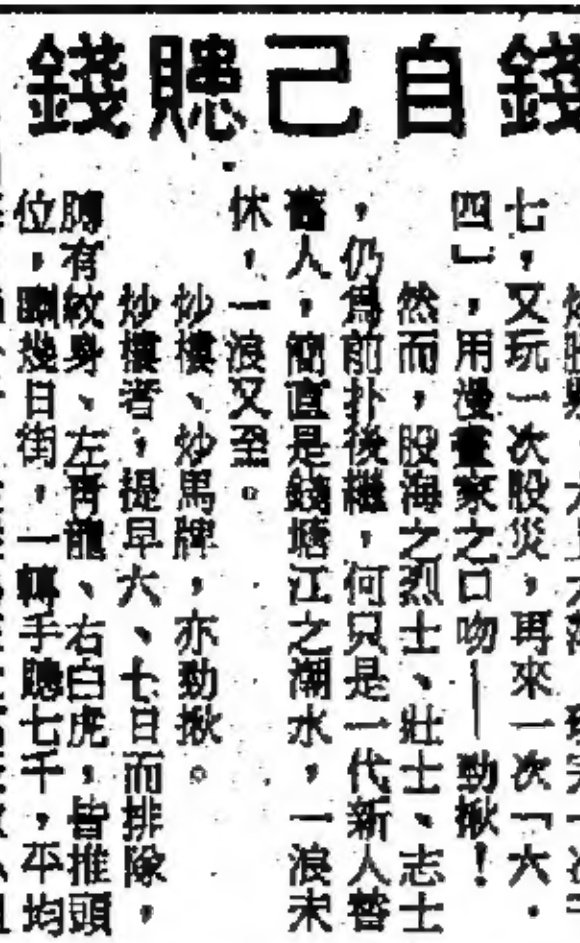 錢自己錢
七，又玩一次股災，再來一次「六．
四」，用漫畫家之口吻——勁揪！
然而，股海之烈士、壯士、志士
，仍爲前扑後繼，何只是一代新人替
舊人，簡直是錢塘江之潮水，一浪未
休，一浪又至。
炒樓、炒馬牌，亦勁揪。
炒樓者，提早六、七日而排隊，
膊有紋身、左青龍、右白虎，皆推頭
位，瞓幾日街，一轉手七千，平均